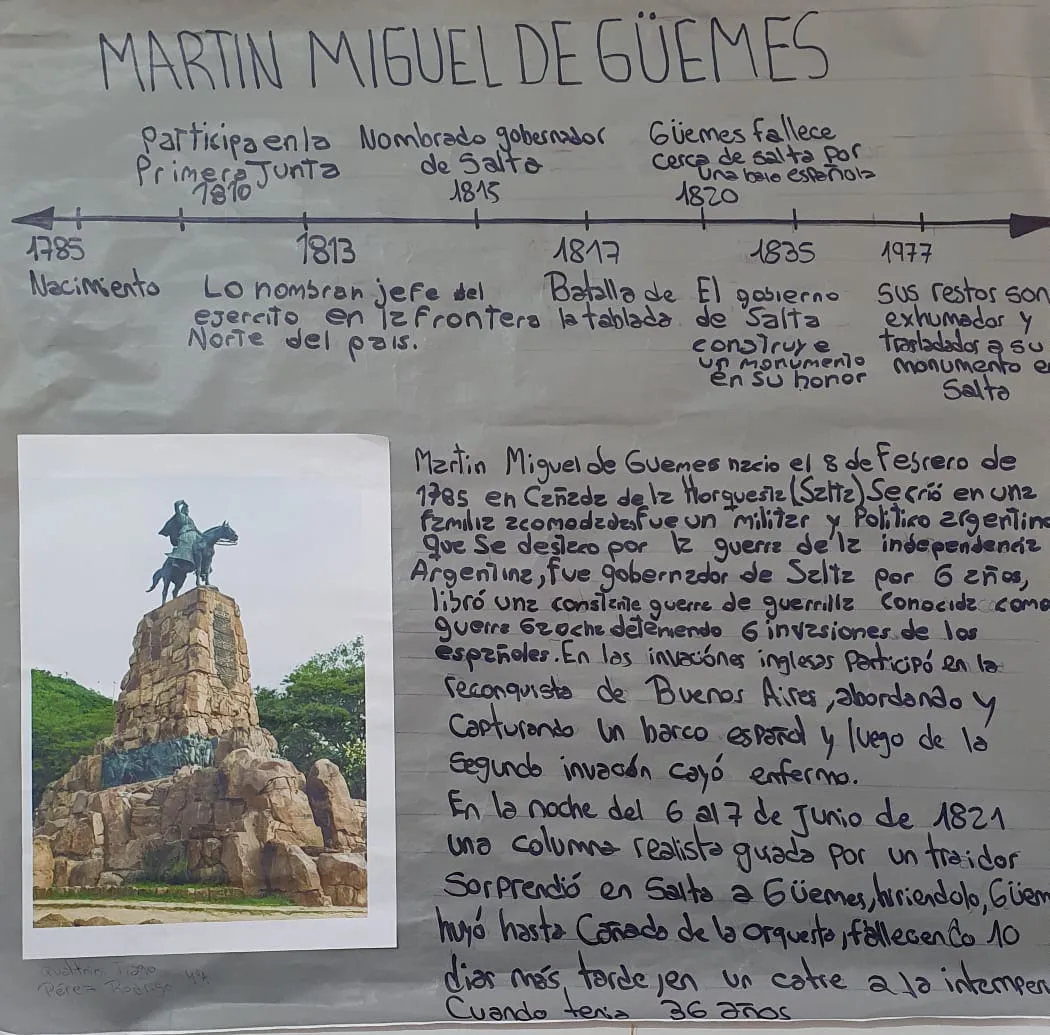 MARTIN MIGUEL DE GÜEMES
Participa en la
Primera Junta
1810
Nombrado gobernador
de Salta
1815
Güemes fallece
cerca de salta por
una bala española
1820
1785
Nacimiento
1813
Lo nombran jefe del
ejercito en la frontera
Norte del pais.
1817
Batalla de
la tablada
1835
El gobierno
de Salta
construye
un monumento
en su honor
1977
sus restos son
exhumados y
trasladados a su
monumento e
Salta
Martin Miguel de Guemes nacio el 8 de Febrero de
1785 en Cañada de la Horquesta (Salta) Se crió en una
familia acomodada fue un militar y Politico argentino
que se destaco por la guerra de la independencia
Argentina, fue gobernador de Salta por 6 años,
libró una constante guerra de guerrilla conocida como
guerra Gaucha deteniendo 6 invasiones de los
españoles. En las invaciónes inglesas Participó en la
reconquista de Buenos Aires, abordando y
Capturando un barco español y luego de la
Segunda invación cayó enfermo.
En la noche del 6 al 7 de Junio de 1821
una columna realista guada por un traidor
Sorprendió en Salta a Güemes, hiriendolo, Güem
huyó hasta Cañada de la orquesta, fallecenco 10
dias más tarde, en un catre a la intemper
Cuando tenia 36 años
Tiago
Pérez Rodrigo